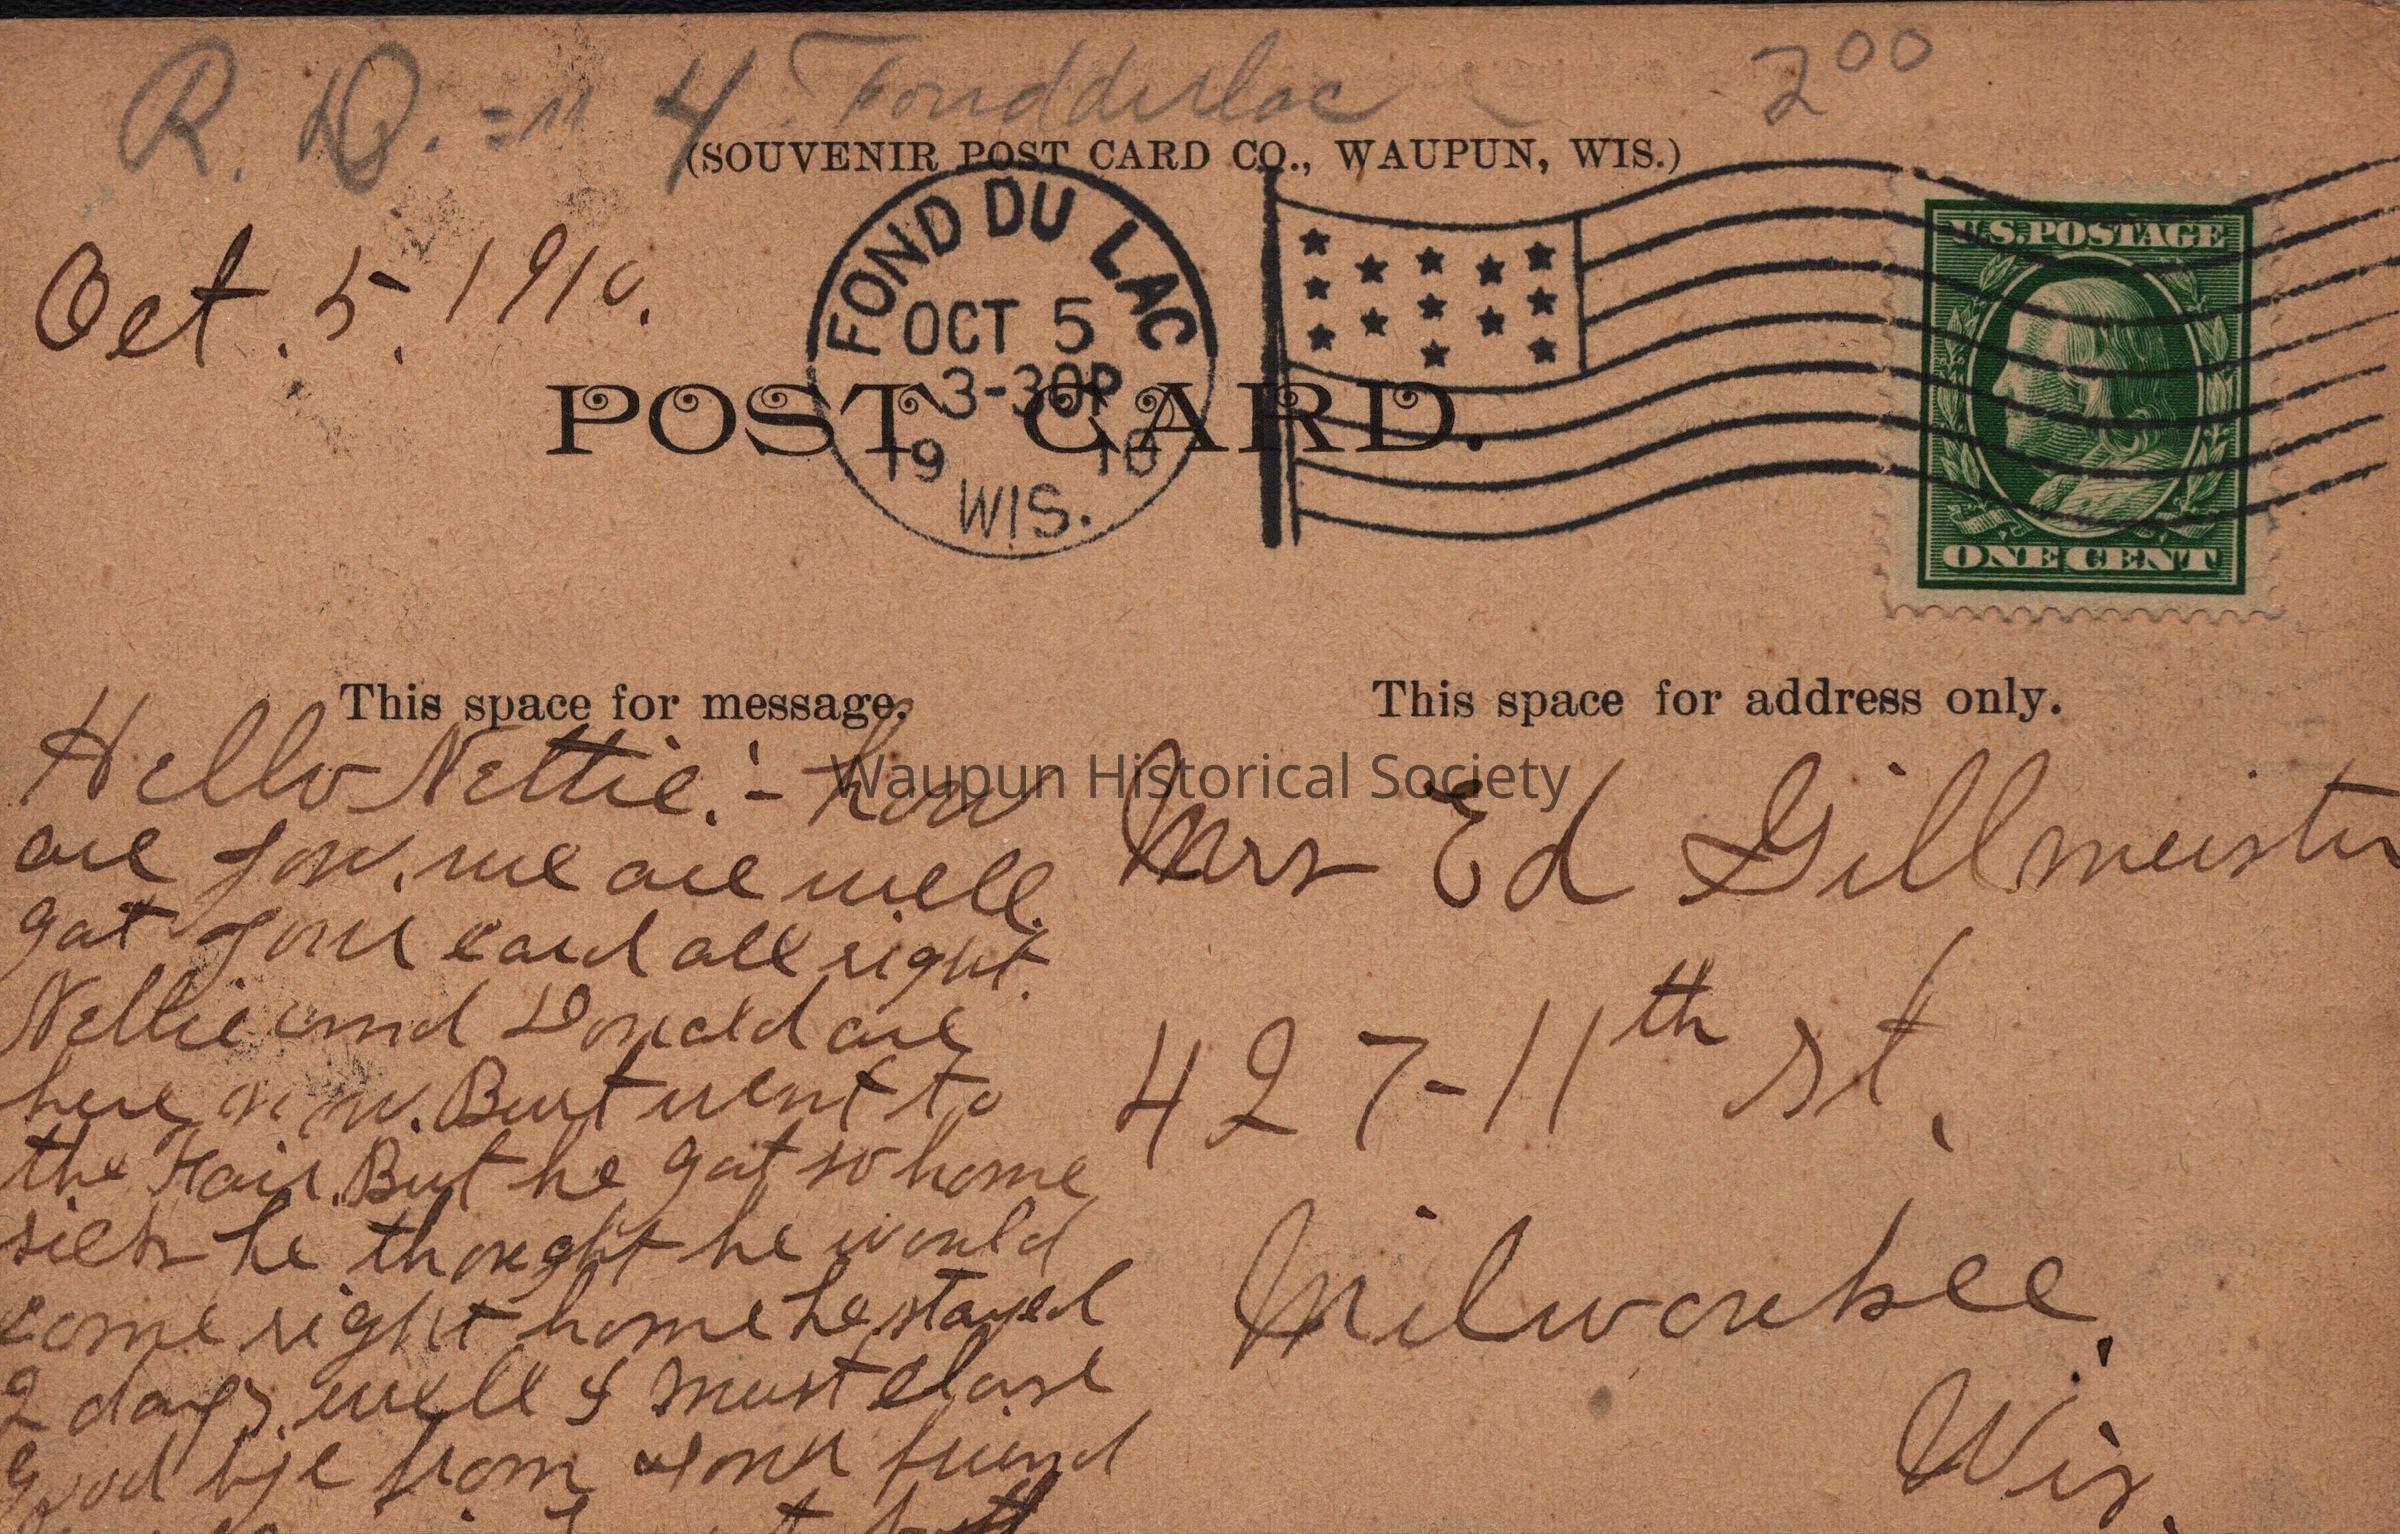 R. D. #4 Fond du lac
2 00
(SOUVENIR POST CARD CO., WAUPUN, WIS.)
Oct. 5, 1910.
FOND DU LAC
OCT 5
3-30P
19 10
WIS.
U.S. POSTAGE
ONE CENT
POST CARD.
This space for message.
Hello Nettie! - how
are you. we are well.
gat your card all right.
Nellie and Donald are
here now. Burt went to
the Fair. But he gat so home
sick he thought he would
come right home he stayed
2 days. well I must close
good bye from your friend
This space for address only.
Mrs Ed Gillmeister
427-11th st.
Milwaukee.
Wis.
Waupun Historical Society